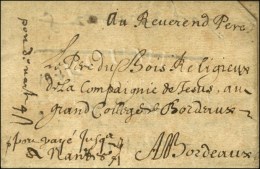 Au Reverend Pere
Le Pre du Bois Religieux
de La Compaignie de Jesus, au
grand College de Bordeaux
A Bordeaux
payé jusqu'a
Nantes